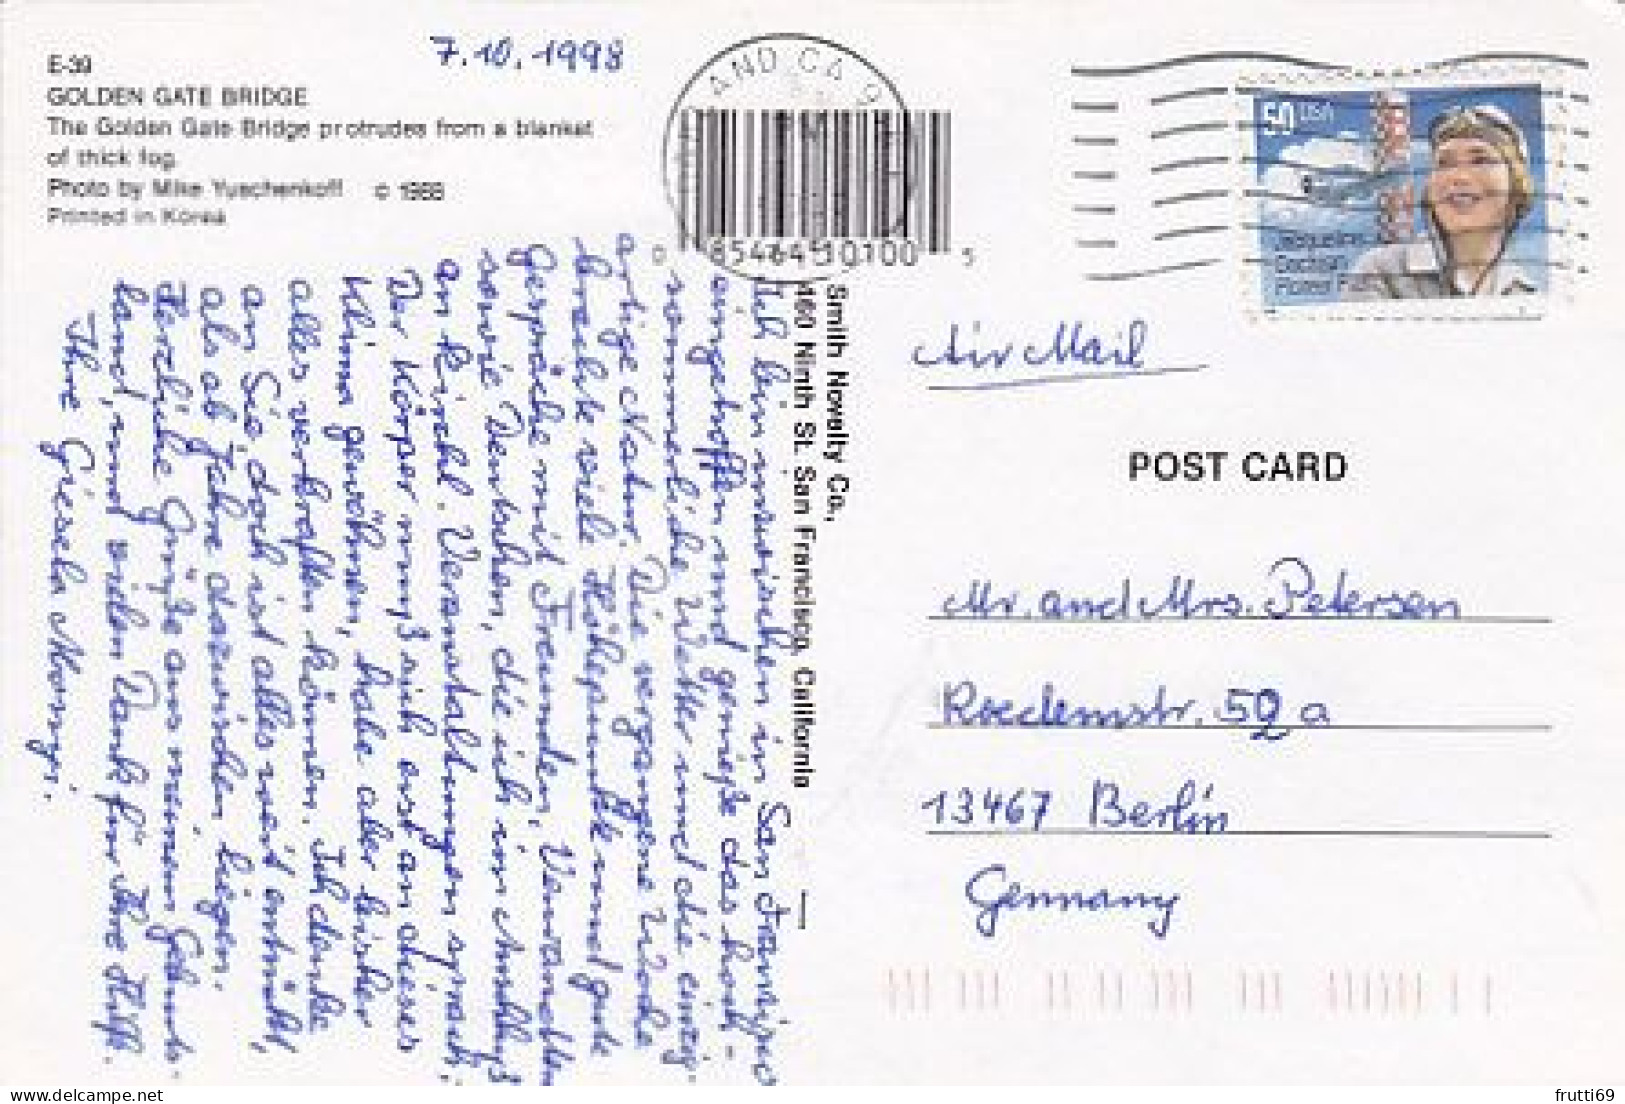 E-39
GOLDEN GATE BRIDGE
The Golden Gate Bridge protrudes from a blanket
of thick fog.
Photo by Mike Yuschenkoff © 1988
Printed in Korea
7.10.1998
AND CA 9
0 85464 10100 5
50 USA
Jacqueline
Cochran
Pioneer Pilot
Air Mail
POST CARD
Mr. and Mrs. Petersen
Roedernstr. 52 a
13467 Berlin
Germany
Smith Novelty Co.,
460 Ninth St. San Francisco, California
Ich bin inzwischen in San Franzisco
eingetroffen und genieße das hoch-
sommerliche Wetter und die einzig-
artige Natur. Die vergangene Woche
brachte viele Höhepunkte und gute
Gespräche mit Freunden, Verwandten
sowie Deutschen, die ich im
an Veranstaltungen sprach.
Der Körper muß sich erst an dieses
Klima gewöhnen, habe aber bisher
alles verkraften können. Ich denke
an Sie doch ist alles weit entrückt,
als ob Jahre dazwischen liegen.
Herzliche Grüße aus meinem Geburts-
land, und vielen Dank für Ihre Hilfe.
Ihre Gisela
frutti69